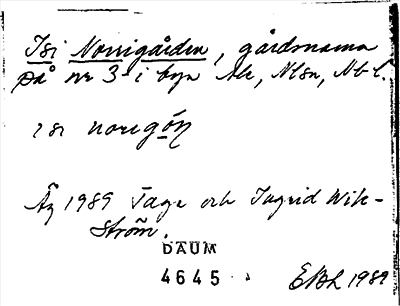 Isi Norrigården, gårdsnamn
på nr 3 i byn Ale, Nlsn, Nbt.
i si norigón
Äg 1989 Tage och Ingrid Wik-
ström.
DAUM
4645
EBL 1989